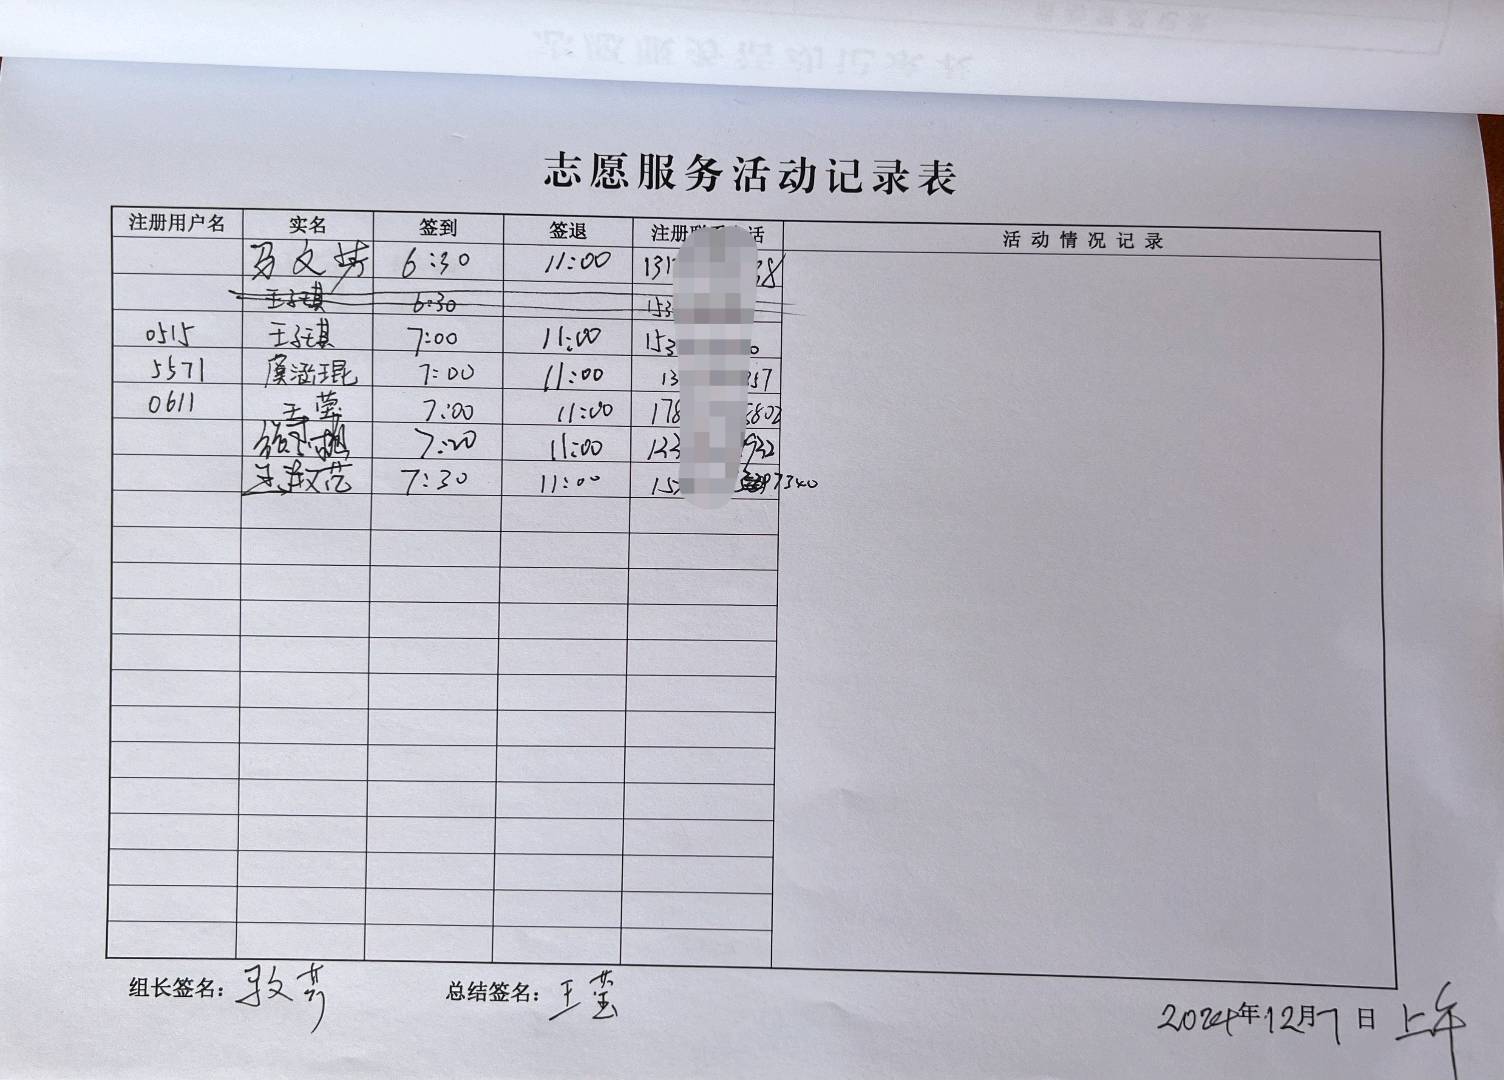 志愿服务活动记录表
注册用户名 实名 签到 签退 注册 话 活动情况记录
马文 6:30 11:00 131 38
王子琪 6:30 153
0515 王子琪 7:00 11:00 153 0
5571 虞涵琨 7:00 11:00 13 357
0611 王莹 7:00 11:00 178 5802
7:20 11:00 133 932
7:30 11:00 15 97340
组长签名: 总结签名: 王莹
2024年12月7日 上午